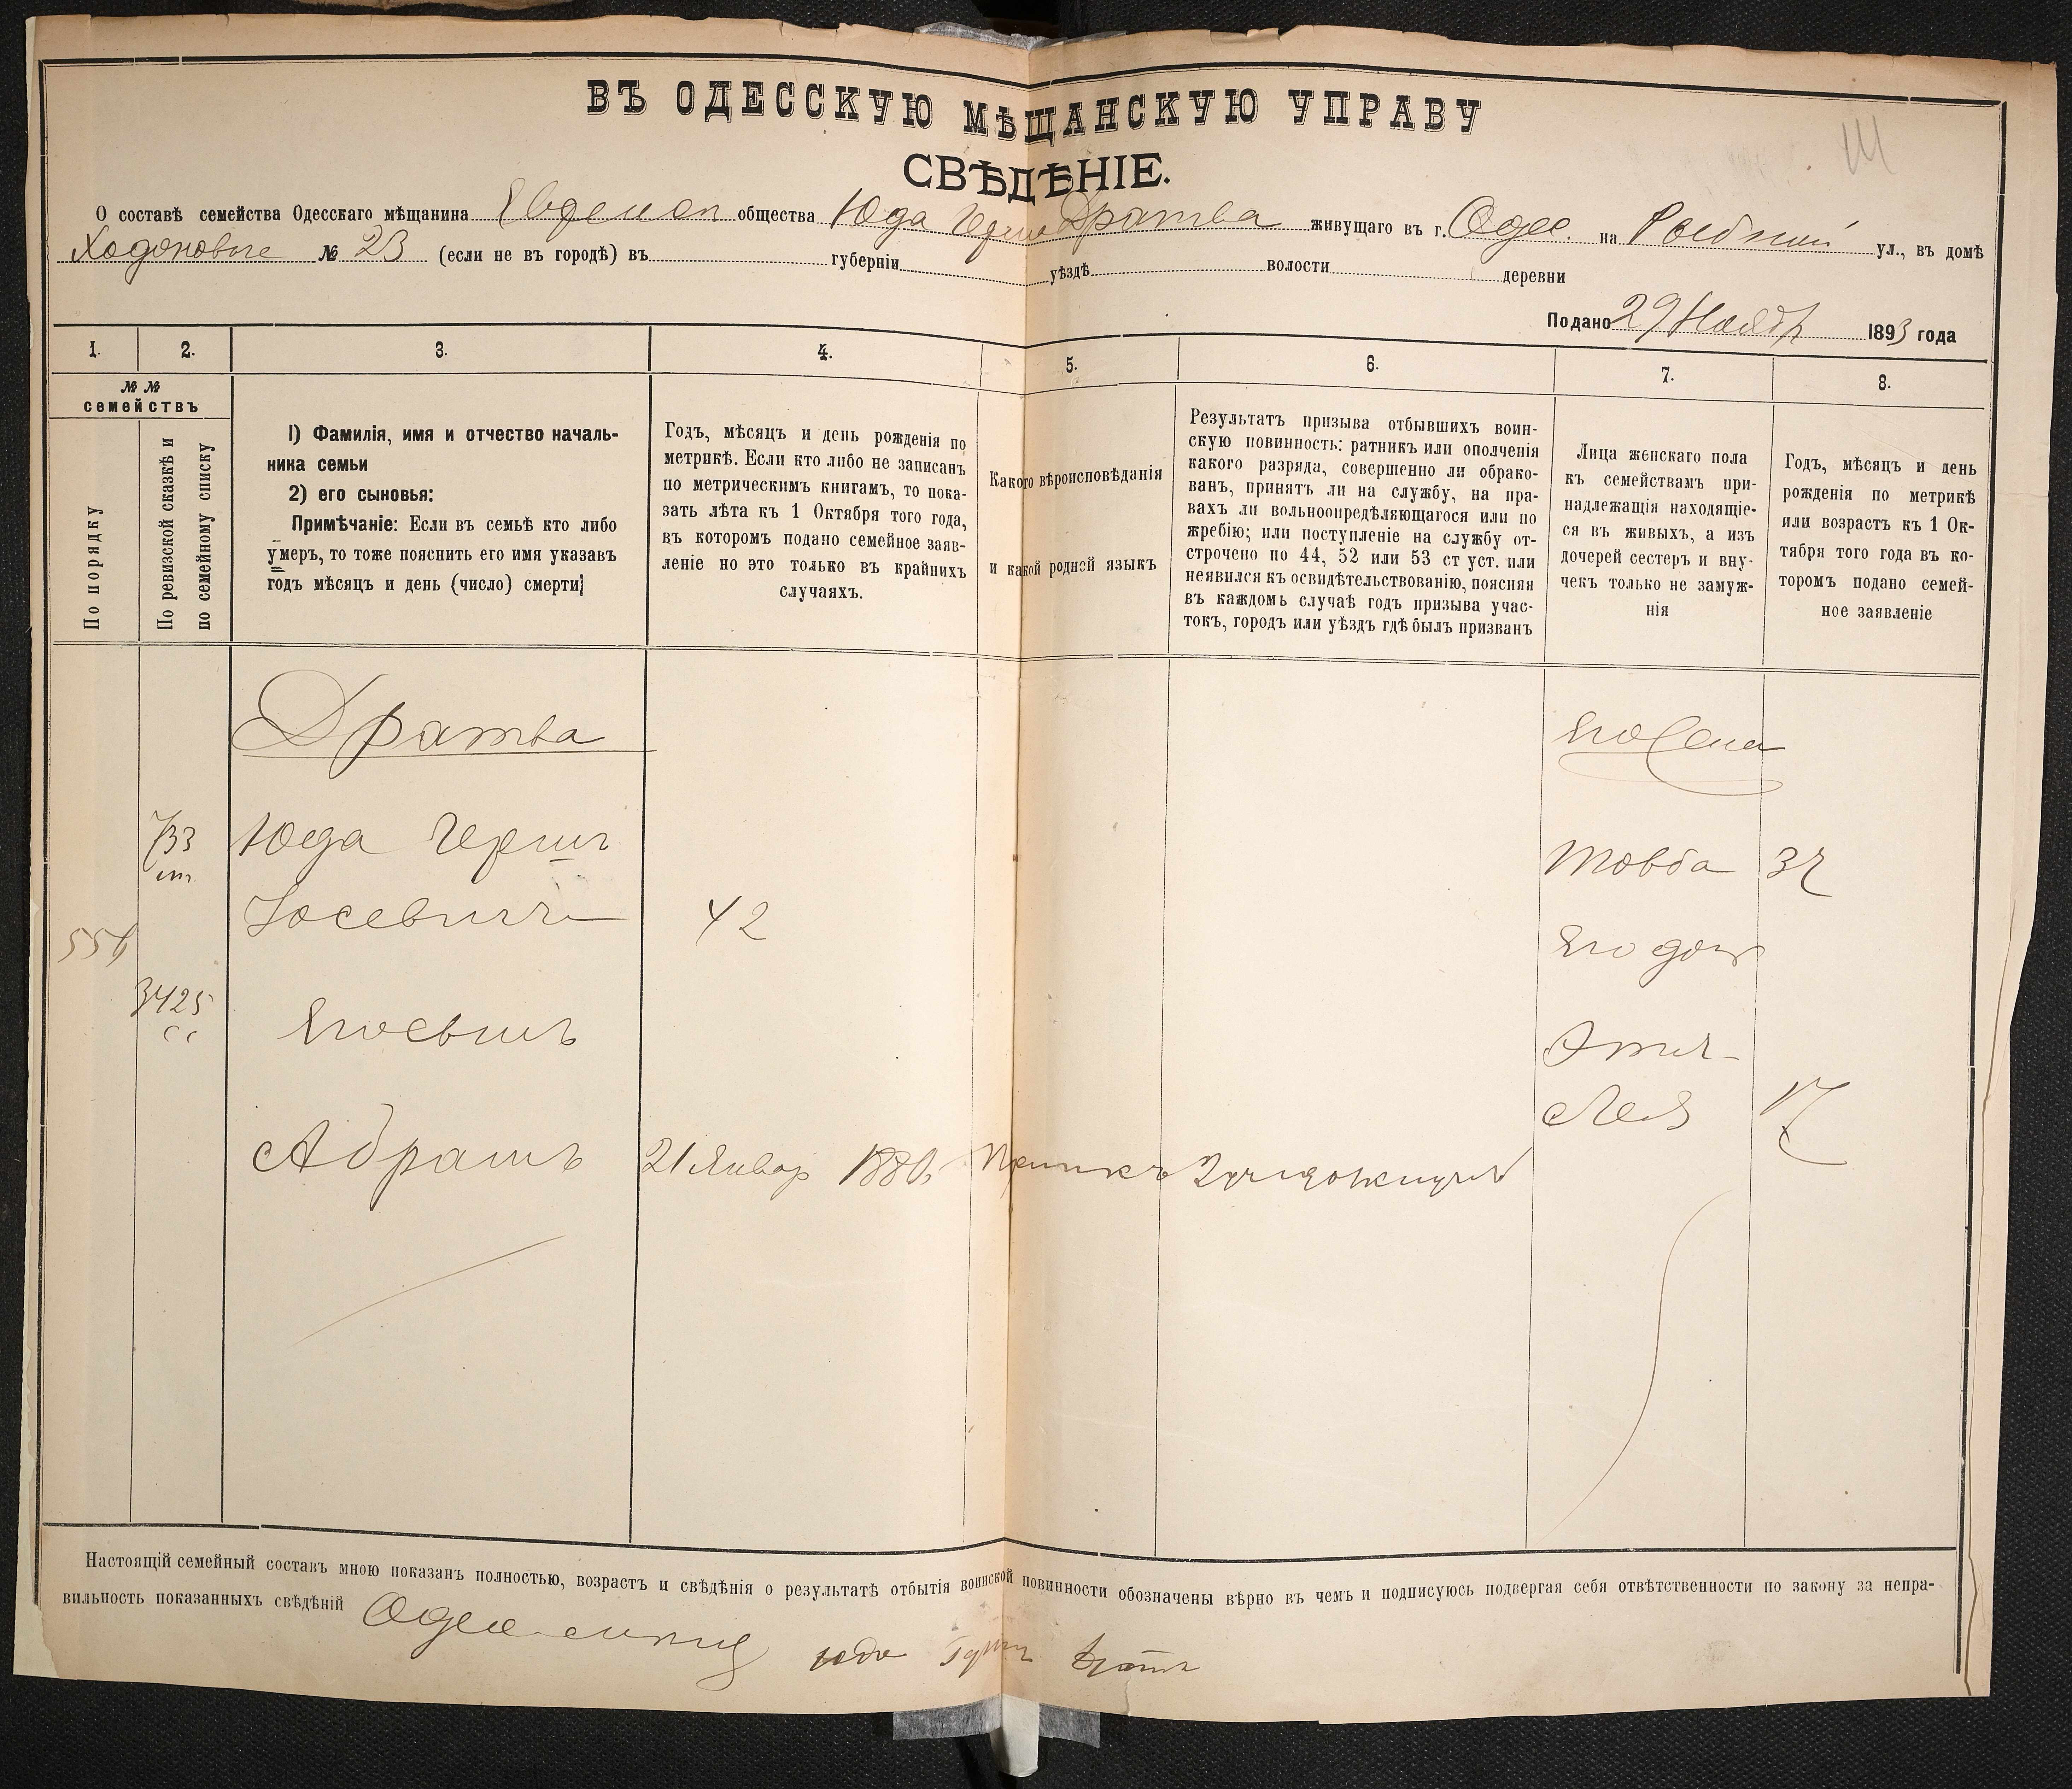 ВЪ ОДЕССКУЮ МѢЩАНСКУЮ УПРАВУ
СВѢДѢНІЕ.
О составѣ семейства Одесскаго мѣщанина общества Юда Герш Дратва живущаго въ г. Одес. на ул., въ домѣ
№ 23 (если не въ городѣ) въ губерніи уѣздѣ волости деревни
Подано 29 Ноябр 1893 года
1. 2. 3. 4. 5. 6. 7. 8.
№ №
семействъ
По порядку
По ревизской сказкѣ и
по семейному списку
1) Фамилія, имя и отчество началь-
ника семьи
2) его сыновья:
Примѣчаніе: Если въ семьѣ кто либо
умеръ, то тоже пояснить его имя указавъ
годъ мѣсяцъ и день (число) смерти;
Годъ, мѣсяцъ и день рожденія по
метрикѣ. Если кто либо не записанъ
по метрическимъ книгамъ, то пока-
зать лѣта къ 1 Октября того года,
въ которомъ подано семейное заяв-
леніе но это только въ крайнихъ
случаяхъ.
Какого вѣроисповѣданія
и какой родной языкъ
Результатъ призыва отбывшихъ воин-
скую повинность: ратникъ или ополченія
какого разряда, совершенно ли обрако-
ванъ, принятъ ли на службу, на пра-
вахъ ли вольноопредѣляющагося или по
жребію; или поступленіе на службу от-
строчено по 44, 52 или 53 ст уст. или
неявился къ освидѣтельствованію, поясняя
въ каждомъ случаѣ годъ призыва учас-
токъ, городъ или уѣздъ гдѣ былъ призванъ
Лица женскаго пола
къ семействамъ при-
надлежащія находящіе-
ся въ живыхъ, а изъ
дочерей сестеръ и вну-
чекъ только не замуж-
нія
Годъ, мѣсяцъ и день
рожденія по метрикѣ
или возрастъ къ 1 Ок-
тября того года въ ко-
торомъ подано семей-
ное заявленіе
Дратва
Его жена
733 Юда Герш Товба
Іосевичъ 42
556 Его доч
3425 Его сынъ Этил-
сс Лея 17
Абрамъ 21 Январ 1880
Настоящій семейный составъ мною показанъ полностью, возрастъ и свѣдѣнія о результатѣ отбытія воинской повинности обозначены вѣрно въ чемъ и подписуюсь подвергая себя отвѣтственности по закону за непра-
вильность показанныхъ свѣдѣній